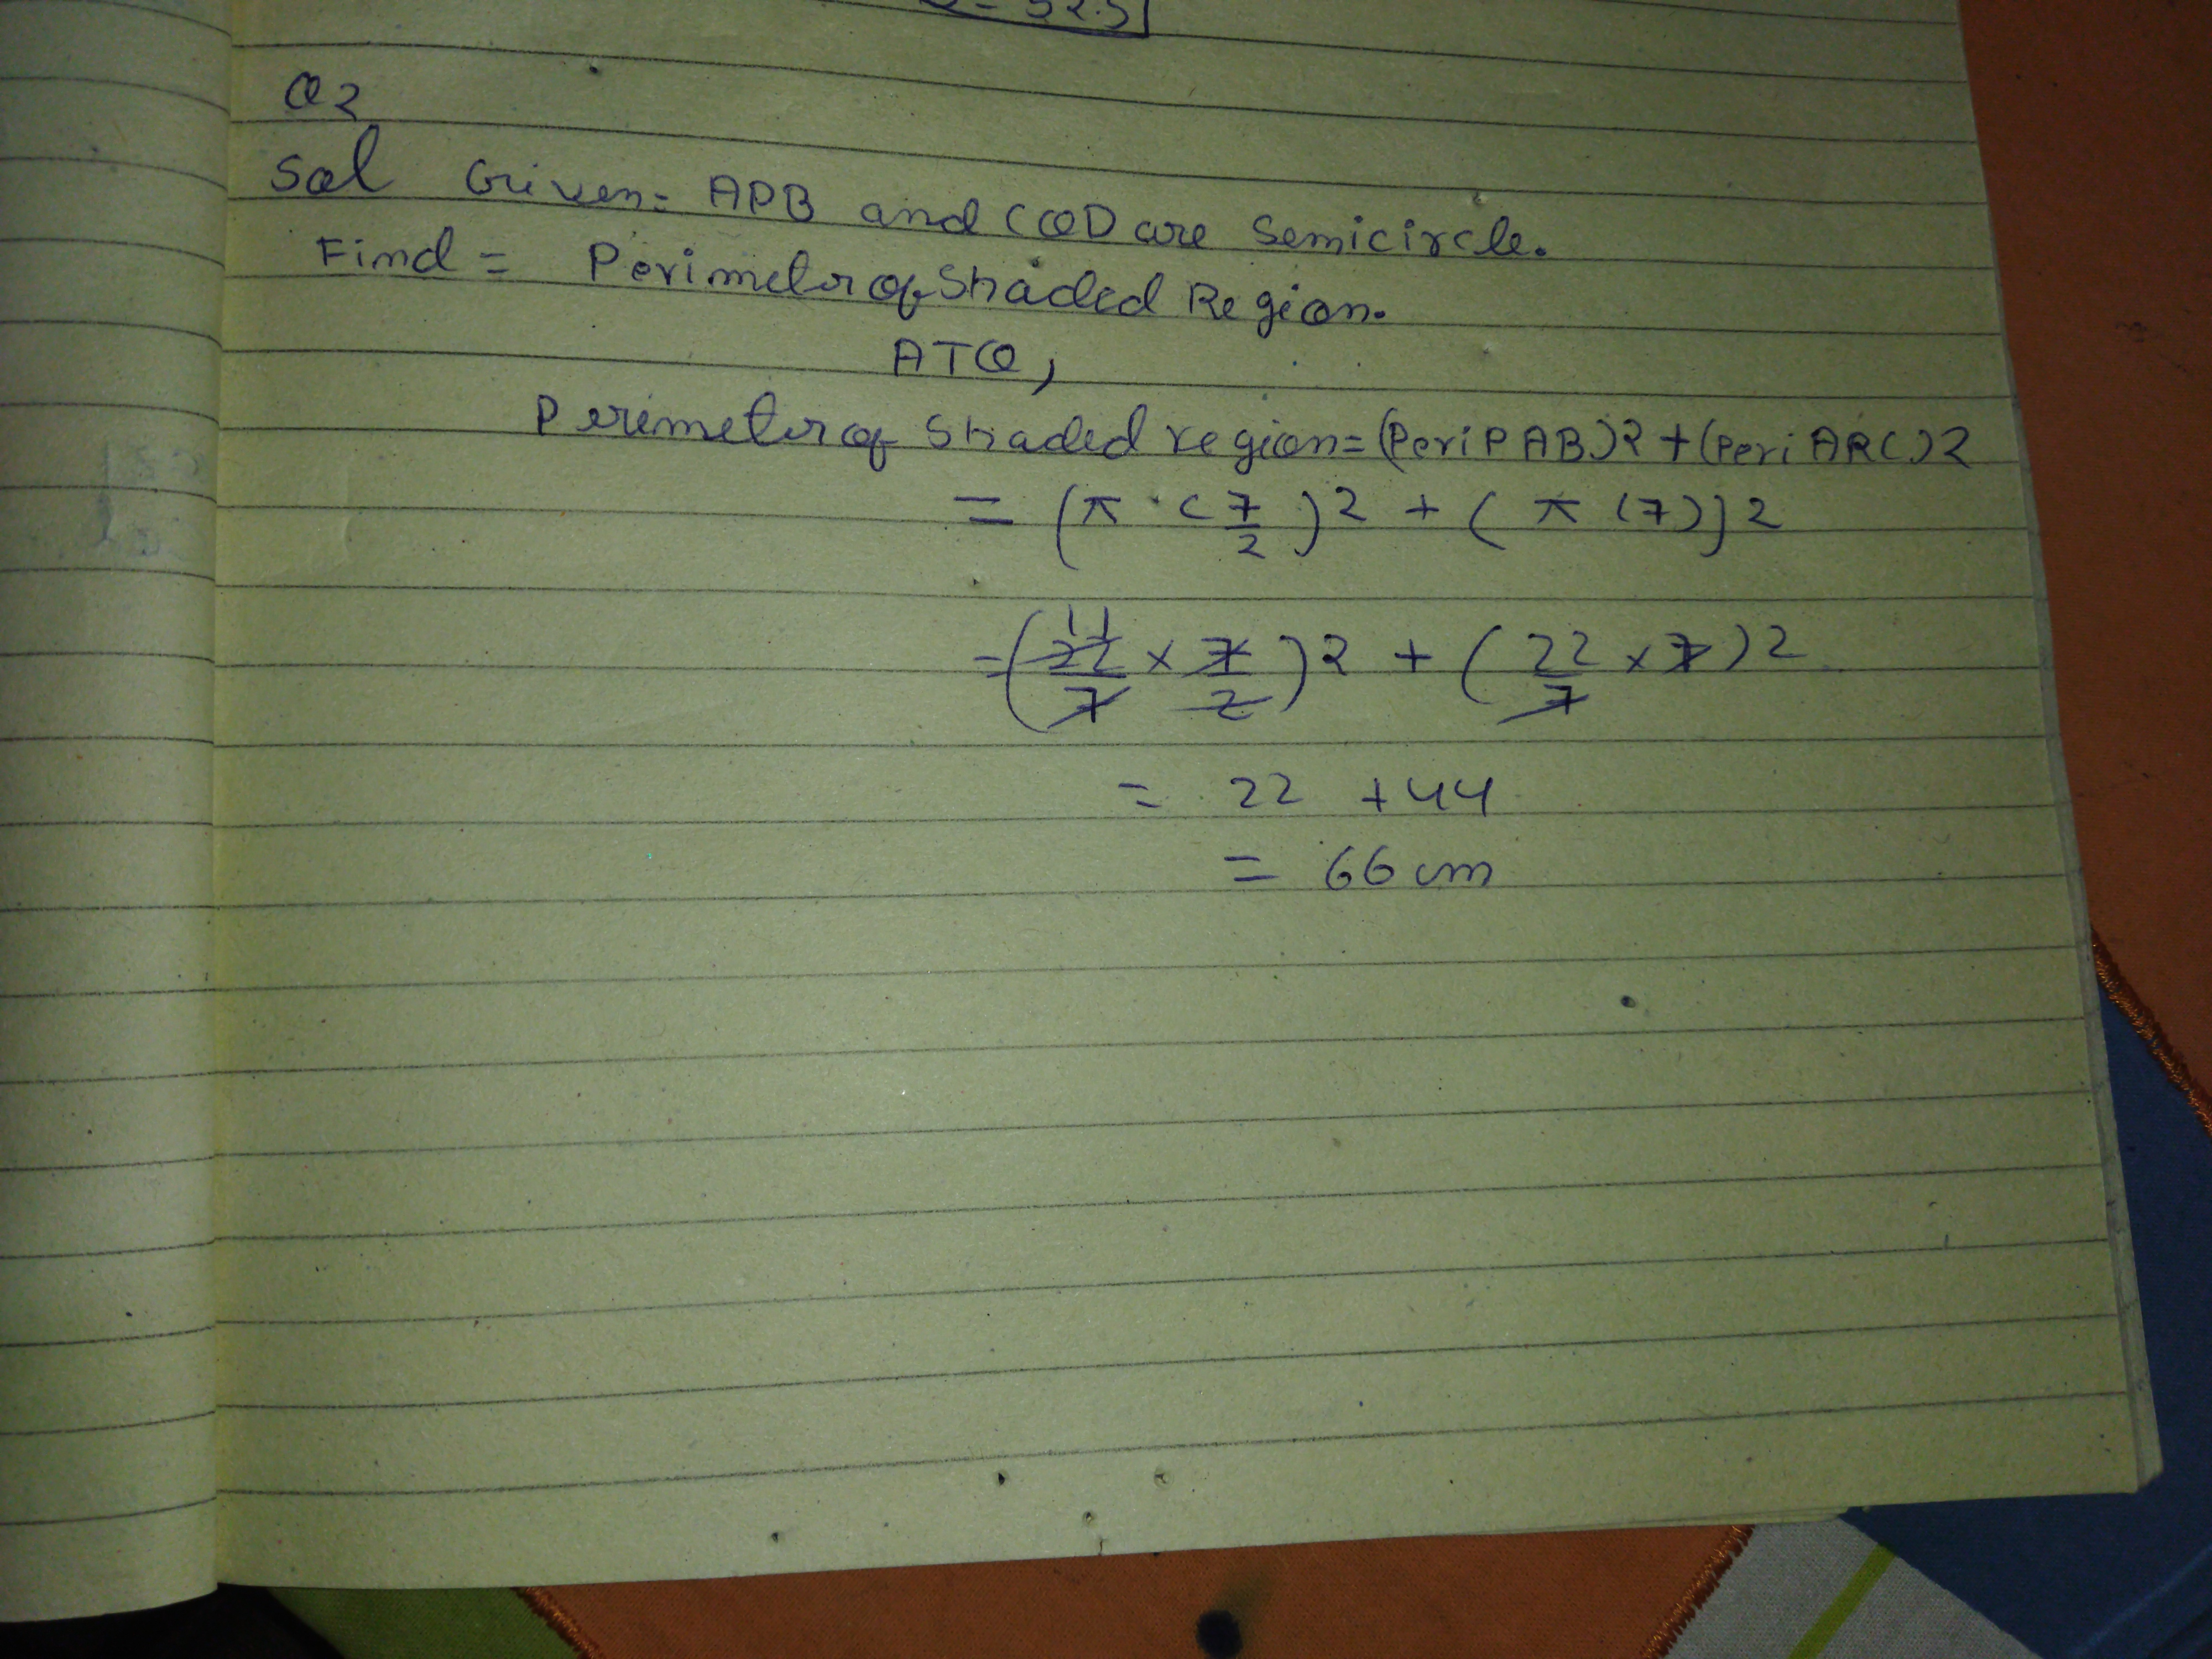 = 52.5
Q2
Sol Given = APB and CQD are semicircle.
Find = Perimeter of Shaded Region.
ATQ,
Perimeter of Shaded region = (Peri PAB)2 + (Peri ARC)2
= (π · (7/2)2 + (π (7))2
= (22/7 11 × 7/2)2 + (22/7 × 7)2
= 22 + 44
= 66 cm